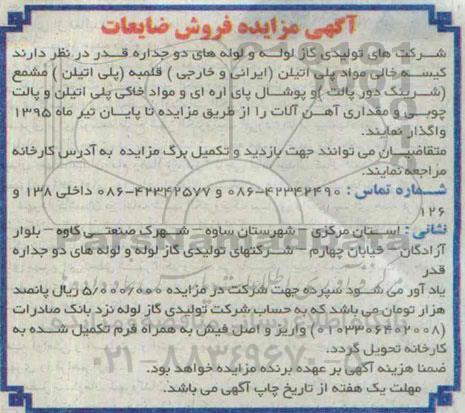 آگهی مزایده فروش ضایعات
شرکت های تولیدی گاز لوله و لوله های دو جداره قدر در نظر دارند
کیسه خالی مواد پلی اتیلن (ایرانی و خارجی ) قلمبه (پلی اتیلن ) مشمع
(شرینک دور پالت )و پوشال پای اره ای و مواد خاکی پلی اتیلن و پالت
چوبی و مقداری آهن آلات را از طریق مزایده تا پایان تیر ماه ۱۳۹۵
واگذار نمایند.
متقاضیان می توانند جهت بازدید و تکمیل برگ مزایده به آدرس کارخانه
مراجعه نمایند.
شماره تماس : ۴۲۳۴۲۴۹۰-۰۸۶ و ۴۲۳۴۲۵۷۷-۰۸۶ داخلی ۱۳۸ و
۱۲۶
نشانی : استان مرکزی – شهرستان ساوه – شهرک صنعتی کاوه – بلوار
آزادگان – خیابان چهارم – شرکتهای تولیدی گاز لوله و لوله های دو جداره
قدر
یاد آور می شود سپرده جهت شرکت در مزایده ۵/۰۰۰۶۰۰۰ ریال پانصد
هزار تومان می باشد که به حساب شرکت تولیدی گاز لوله نزد بانک صادرات
(۰۱۰۳۳۰۶۴۰۲۰۰۸) واریز و اصل فیش به همراه فرم تکمیل شده به
کارخانه تحویل گردد.
ضمنا هزینه آگهی بر عهده برنده مزایده خواهد بود.
مهلت یک هفته از تاریخ چاپ آگهی می باشد.
ParsNamadData
۰۲۱-۸۸۳۴۹۶۷۰